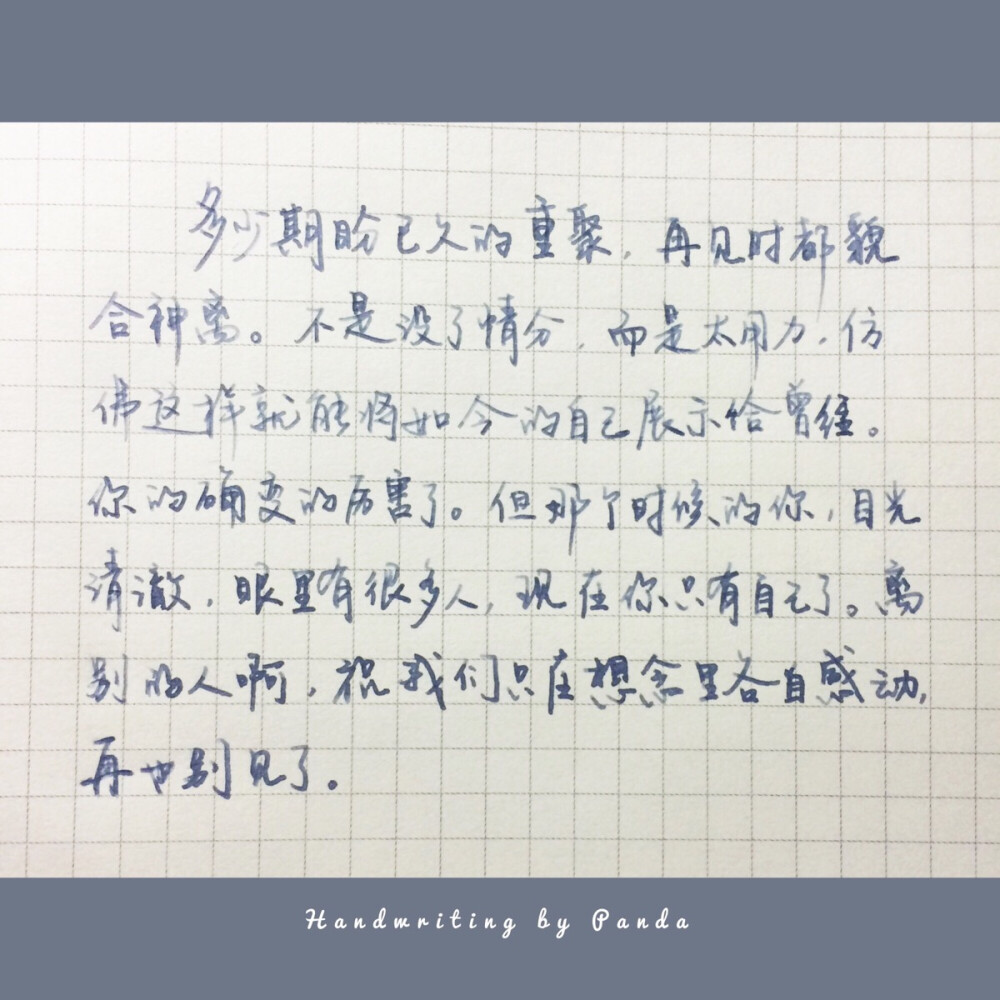 多少期盼已久的重聚，再见时都貌
合神离。不是没了情分，而是太用力，仿
佛这样就能将如今的自己展示给曾经。
你的确变的厉害了。但那个时候的你，目光
清澈，眼里有很多人，现在你只有自己了。离
别的人啊，祝我们只在想念里各自感动，
再也别见了。
Handwriting by Panda